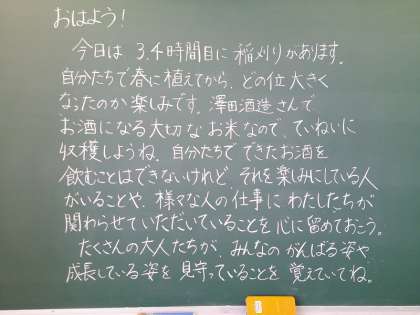 おはよう！
今日は 3.4時間目に 稲刈りがあります。
自分たちで春に植えてから、どの位大きく
なったのか楽しみです。澤田酒造さんで
お酒になる大切なお米なので、ていねいに
収穫しようね。自分たちでできたお酒を
飲むことはできないけれど、それを楽しみにしている人
がいることや、様々な人の仕事にわたしたちが
関わらせていただいていることを心に留めておこう。
たくさんの大人たちが、みんなのがんばる姿や
成長している姿を見守っていることを覚えていてね。